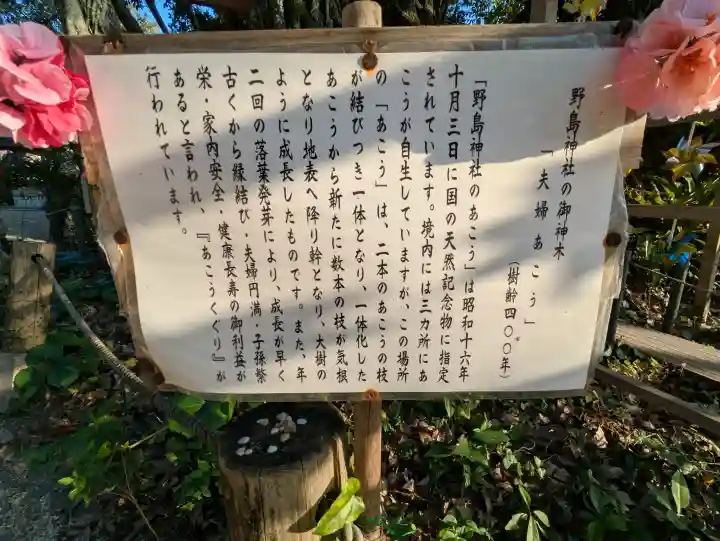 野島神社の御神木
「夫婦あこう」
(樹齢四〇〇年)
「野島神社のあこう」は昭和十六年
十月三日に国の天然記念物に指定
されています。境内には三カ所にあ
こうが自生していますが、この場所
の「あこう」は、二本のあこうの枝
が結びつき一体となり、一体化した
あこうから新たに数本の枝が気根
となり地表へ降り幹となり、大樹の
ように成長したものです。また、年
二回の落葉発芽により、成長が早く
古くから縁結び・夫婦円満・子孫繁
栄・家内安全・健康長寿の御利益が
あると言われ、『あこうくぐり』が
行われています。